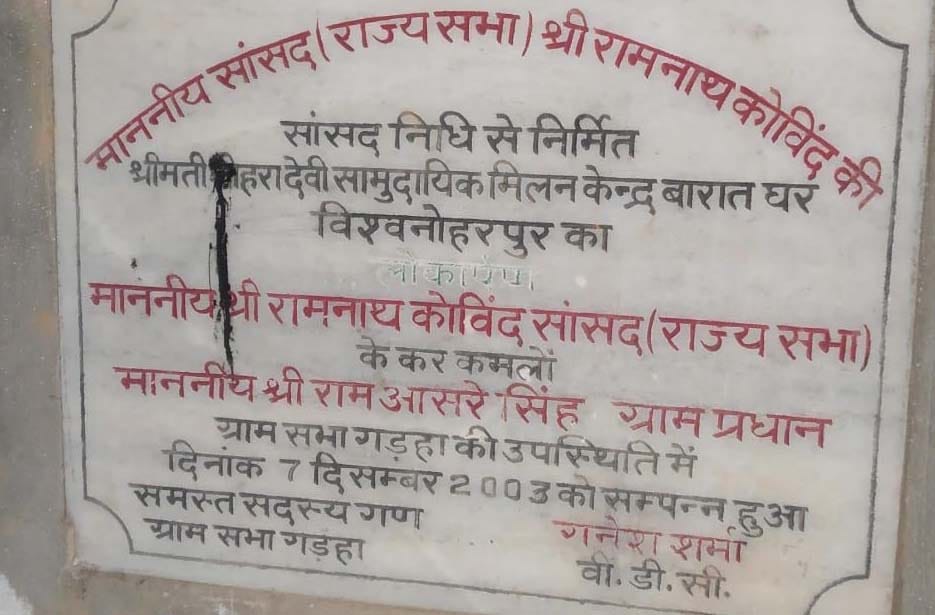 माननीय सांसद (राज्य सभा) श्री रामनाथ कोविंद की
सांसद निधि से निर्मित
श्रीमती देवी सामुदायिक मिलन केन्द्र बारात घर
विश्वनोहरपुर का
लोकार्पण
माननीय श्री रामनाथ कोविंद सांसद (राज्य सभा)
के कर कमलों
माननीय श्री राम आसरे सिंह ग्राम प्रधान
ग्राम सभा गड़हा की उपस्थिति में
दिनांक 7 दिसम्बर 2003 को सम्पन्न हुआ
समस्त सदस्य गण
ग्राम सभा गड़हा
गनेश शर्मा
वी. डी. सी.